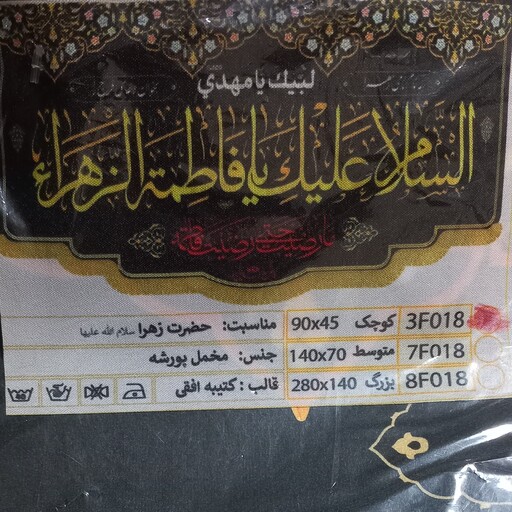 لبيك يا مهدي
السلام عليك يا فاطمة الزهراء
3F018 كوچک 90x45 مناسبت: حضرت زهرا سلام الله علیها
7F018 متوسط 140x70 جنس: مخمل پورشه
8F018 بزرگ 280x140 قالب: کتیبه افقی